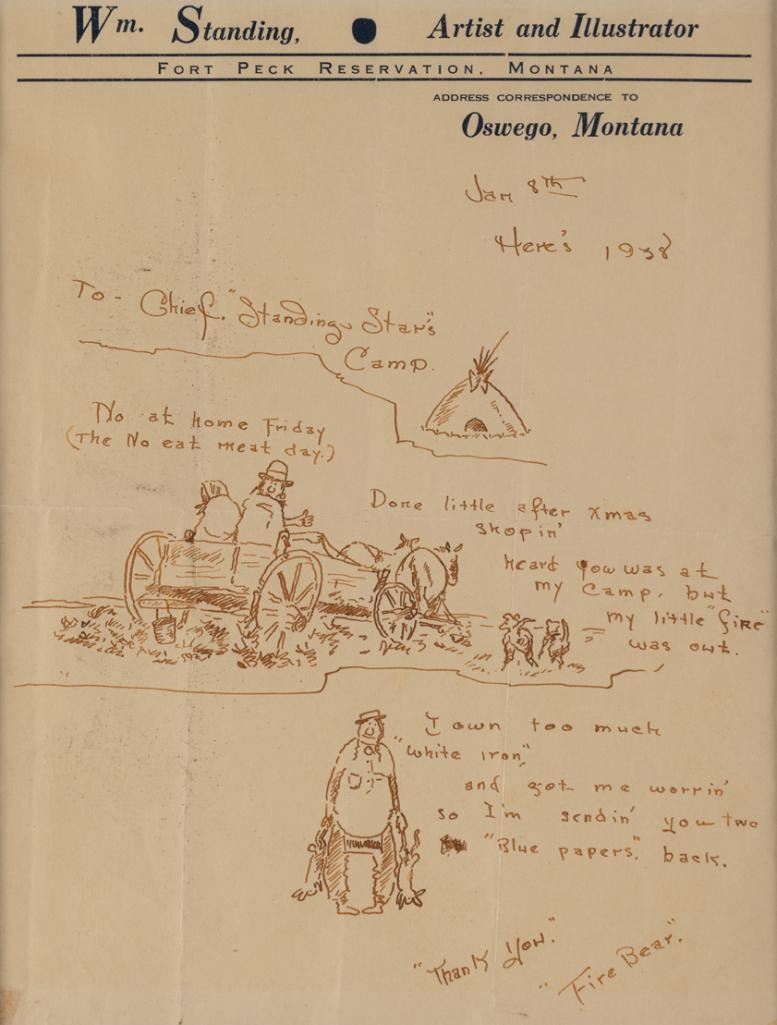 Wm. Standing, Artist and Illustrator
FORT PECK RESERVATION, MONTANA
ADDRESS CORRESPONDENCE TO
Oswego, Montana
Jan 8th
Here's 1938
To - Chief "Standing Star's"
Camp.
No at home Friday
(The No eat meat day.)
Done little after xmas
shopin'
heard you was at
my camp, but
my little "fire"
was out.
I own too much
"white iron"
and got me worrin'
so I'm sendin' you two
"Blue papers." back.
"Thank You."
"Fire Bear."